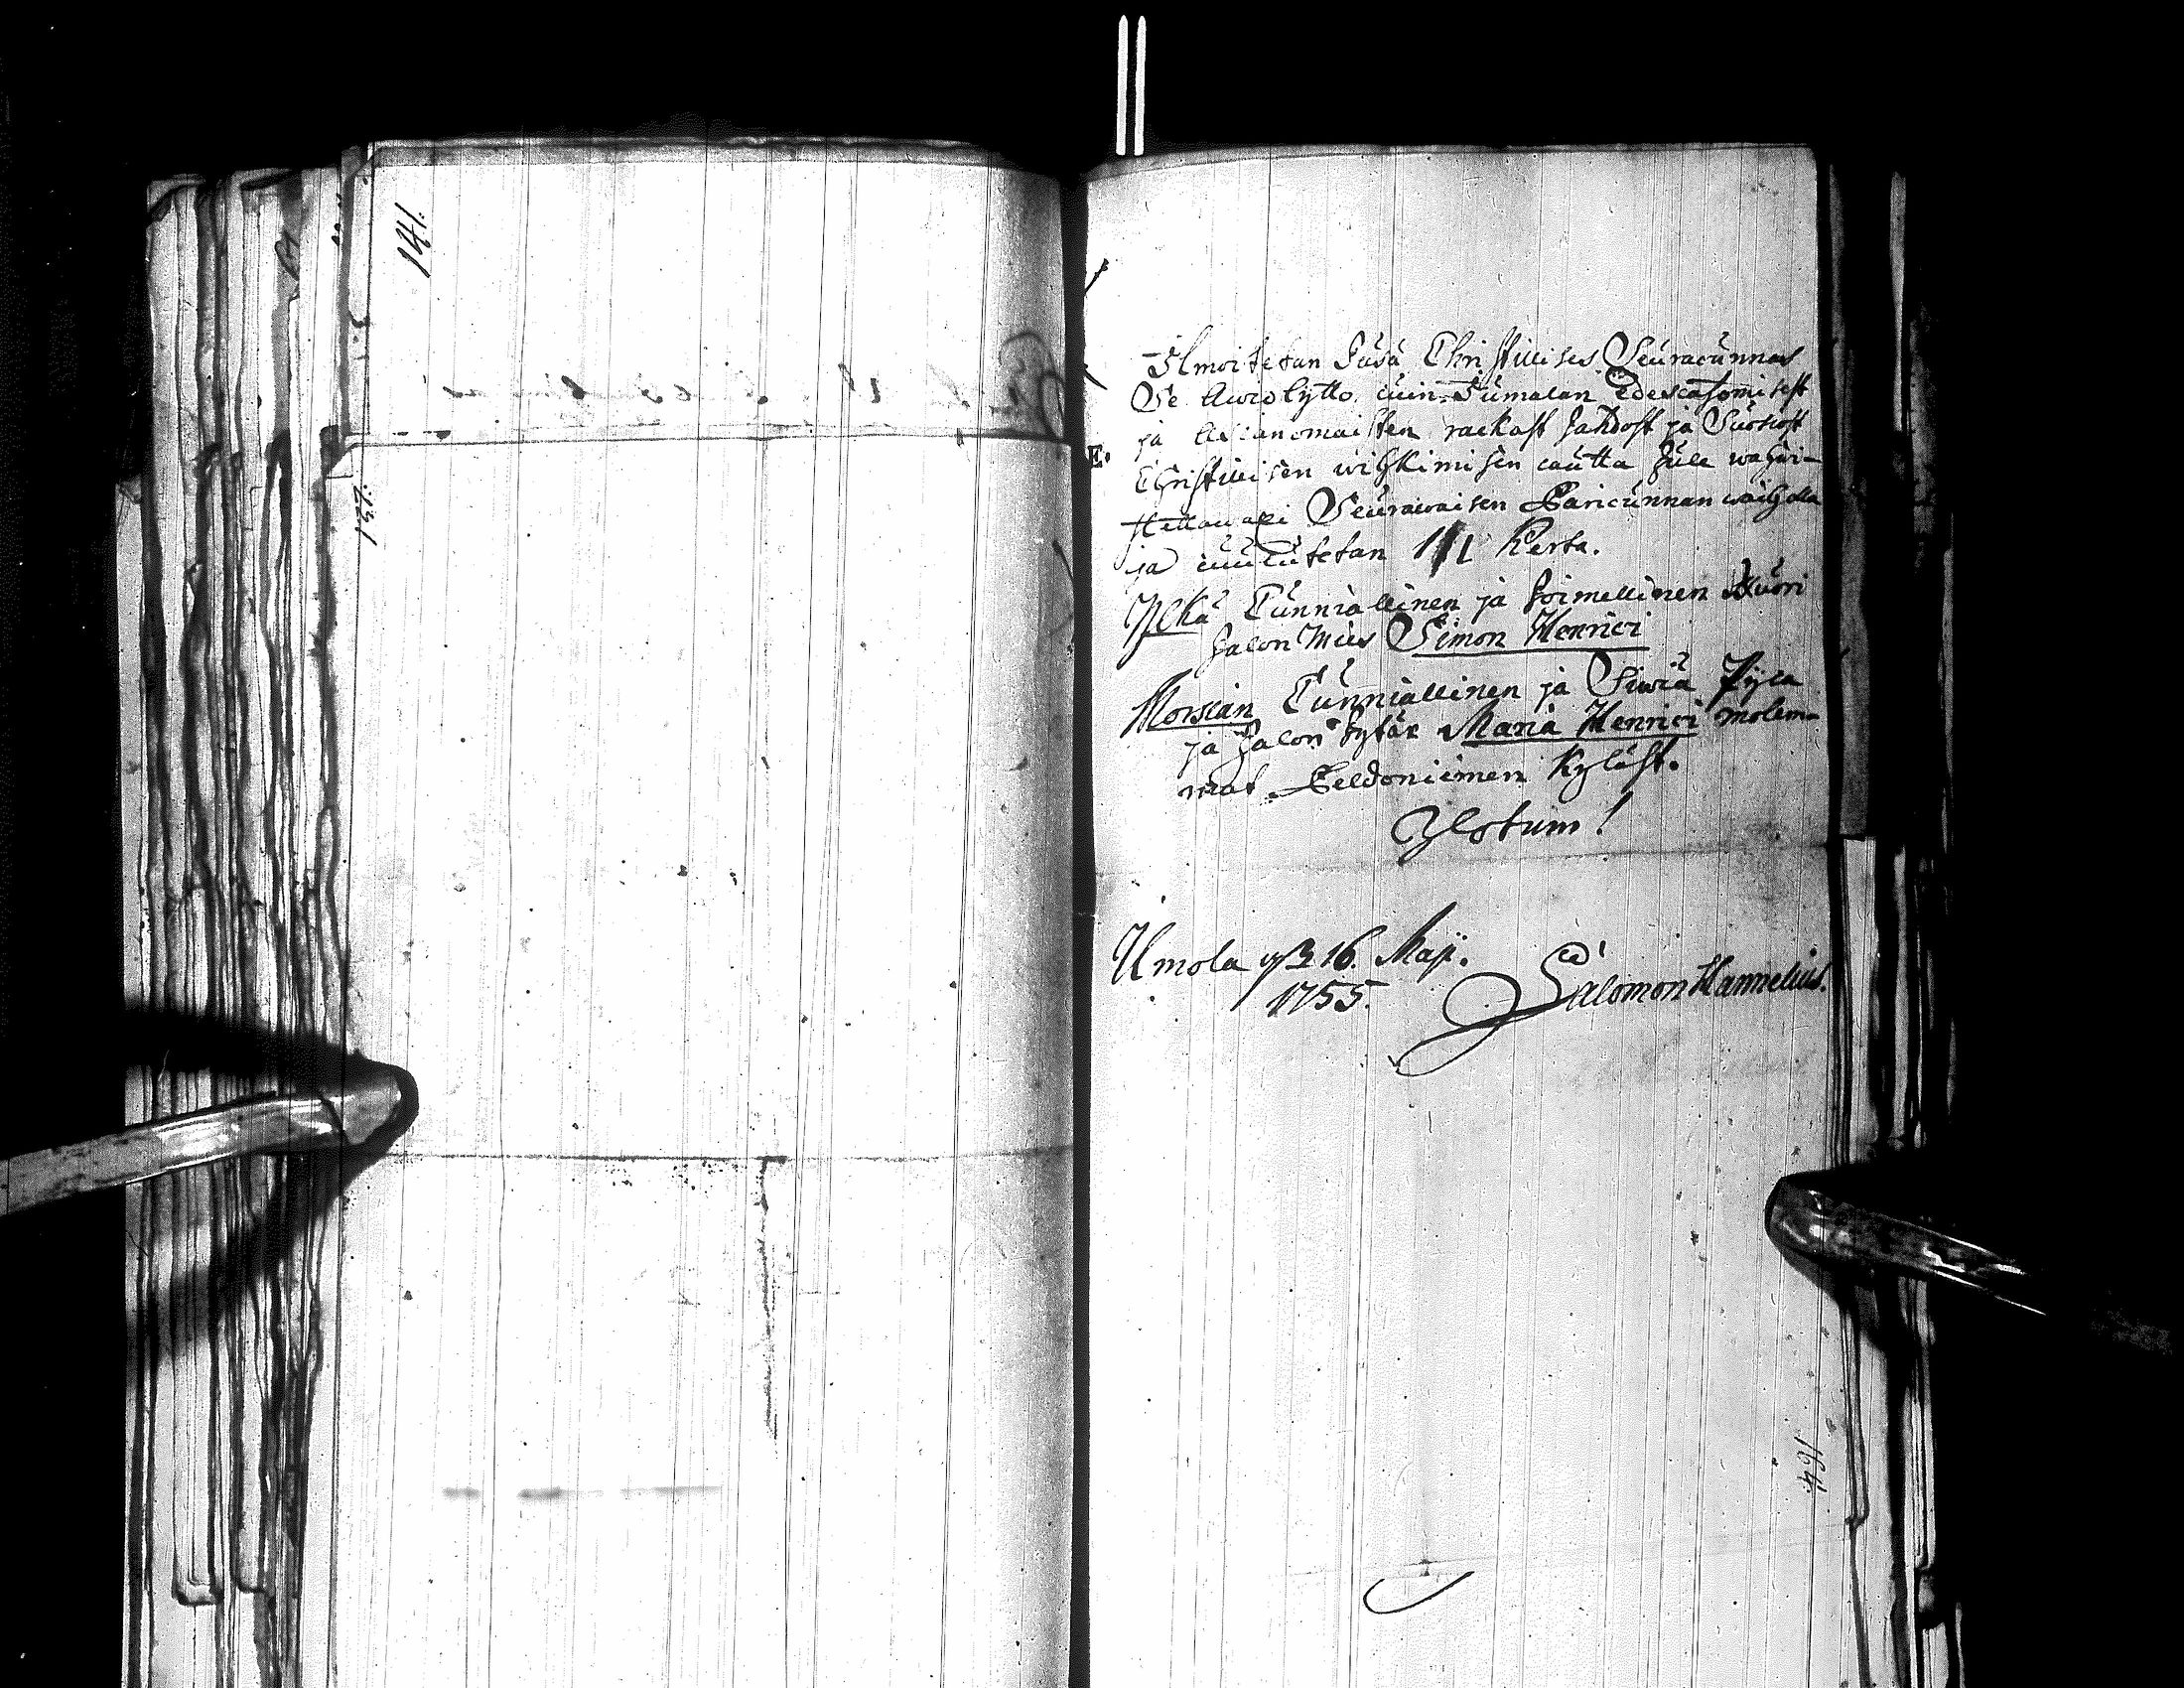 141.
137.
Ilmoitetan Täsä Christillises Seuracunnas
Se Awio kytto, cuin Jumalan Edescatzomisest
ja Asianomaisten rackast tahdost ja Suosiost
E.
Christillisen wihkimisen cautta tule wahwi-
stettawaxi Seurawaisen Paricunnan wäihella
ja cuulutetan 1 Kerta.
Ylkä Cunniallinen ja toimellinen Nuori
talon Mies Simon Henrici
Morsian Cunniallinen ja Siwiä Pijca
ja talon tytär Maria Henrici molem-
mat Peldoniemen Kyläst.
Ylotum!
Umola 16. Maji.
1755. Salomon Hannelius.
164.